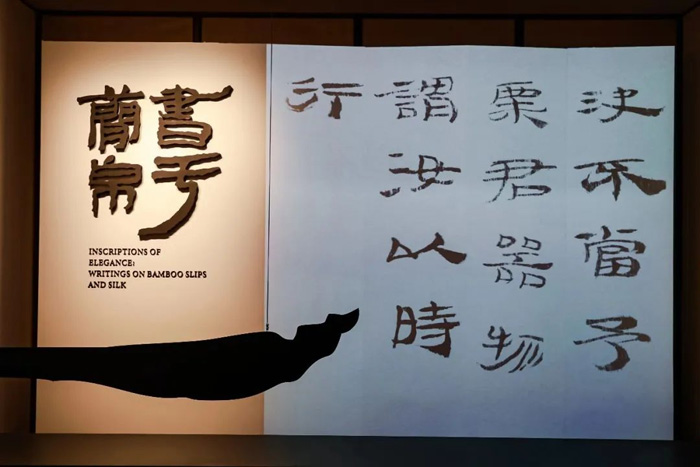 書于
簡帛
INSCRIPTIONS OF
ELEGANCE:
WRITINGS ON BAMBOO SLIPS
AND SILK
決不當予
栗君器物
謂汝以時
行